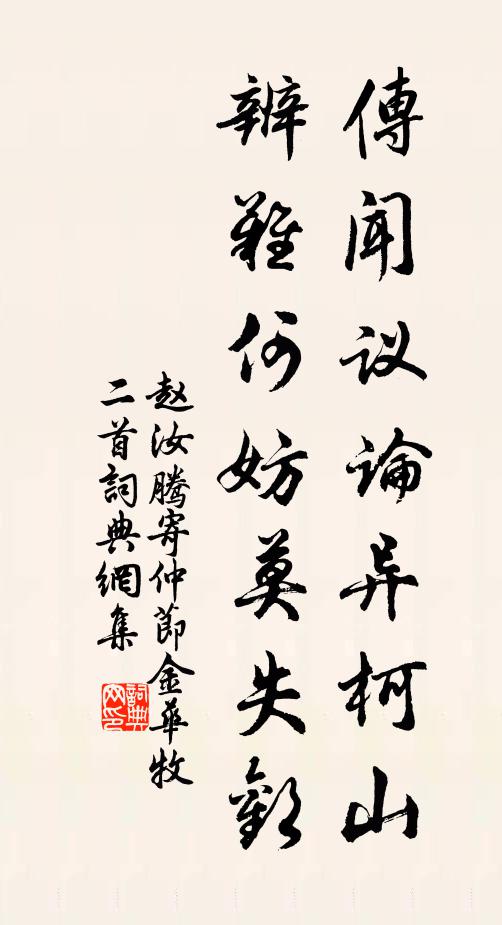 傳聞议論异柯山
辨難何妨莫失歡
赵汝騰寄仲節金華牧
二首詞典網集
詞典网印